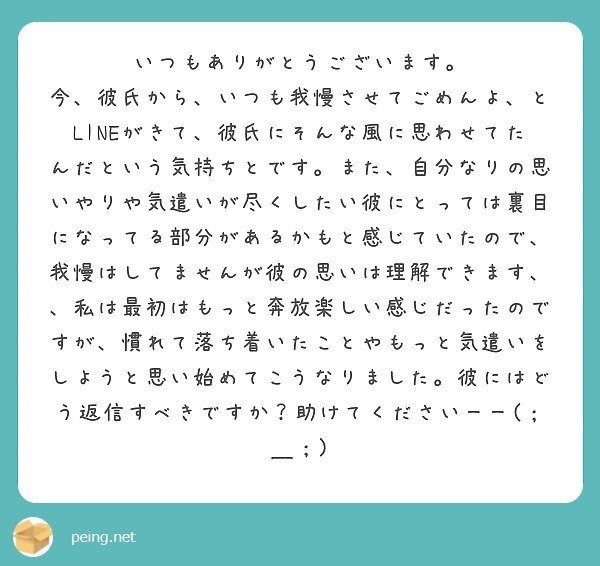 いつもありがとうございます。
今、彼氏から、いつも我慢させてごめんよ、と
LINEがきて、彼氏にそんな風に思わせてた
んだという気持ちとです。また、自分なりの思
いやりや気遣いが尽くしたい彼にとっては裏目
になってる部分があるかもと感じていたので、
我慢はしてませんが彼の思いは理解できます、
、私は最初はもっと奔放楽しい感じだったので
すが、慣れて落ち着いたことやもっと気遣いを
しようと思い始めてこうなりました。彼にはど
う返信すべきですか？助けてくださいーー(；
__；)
peing.net